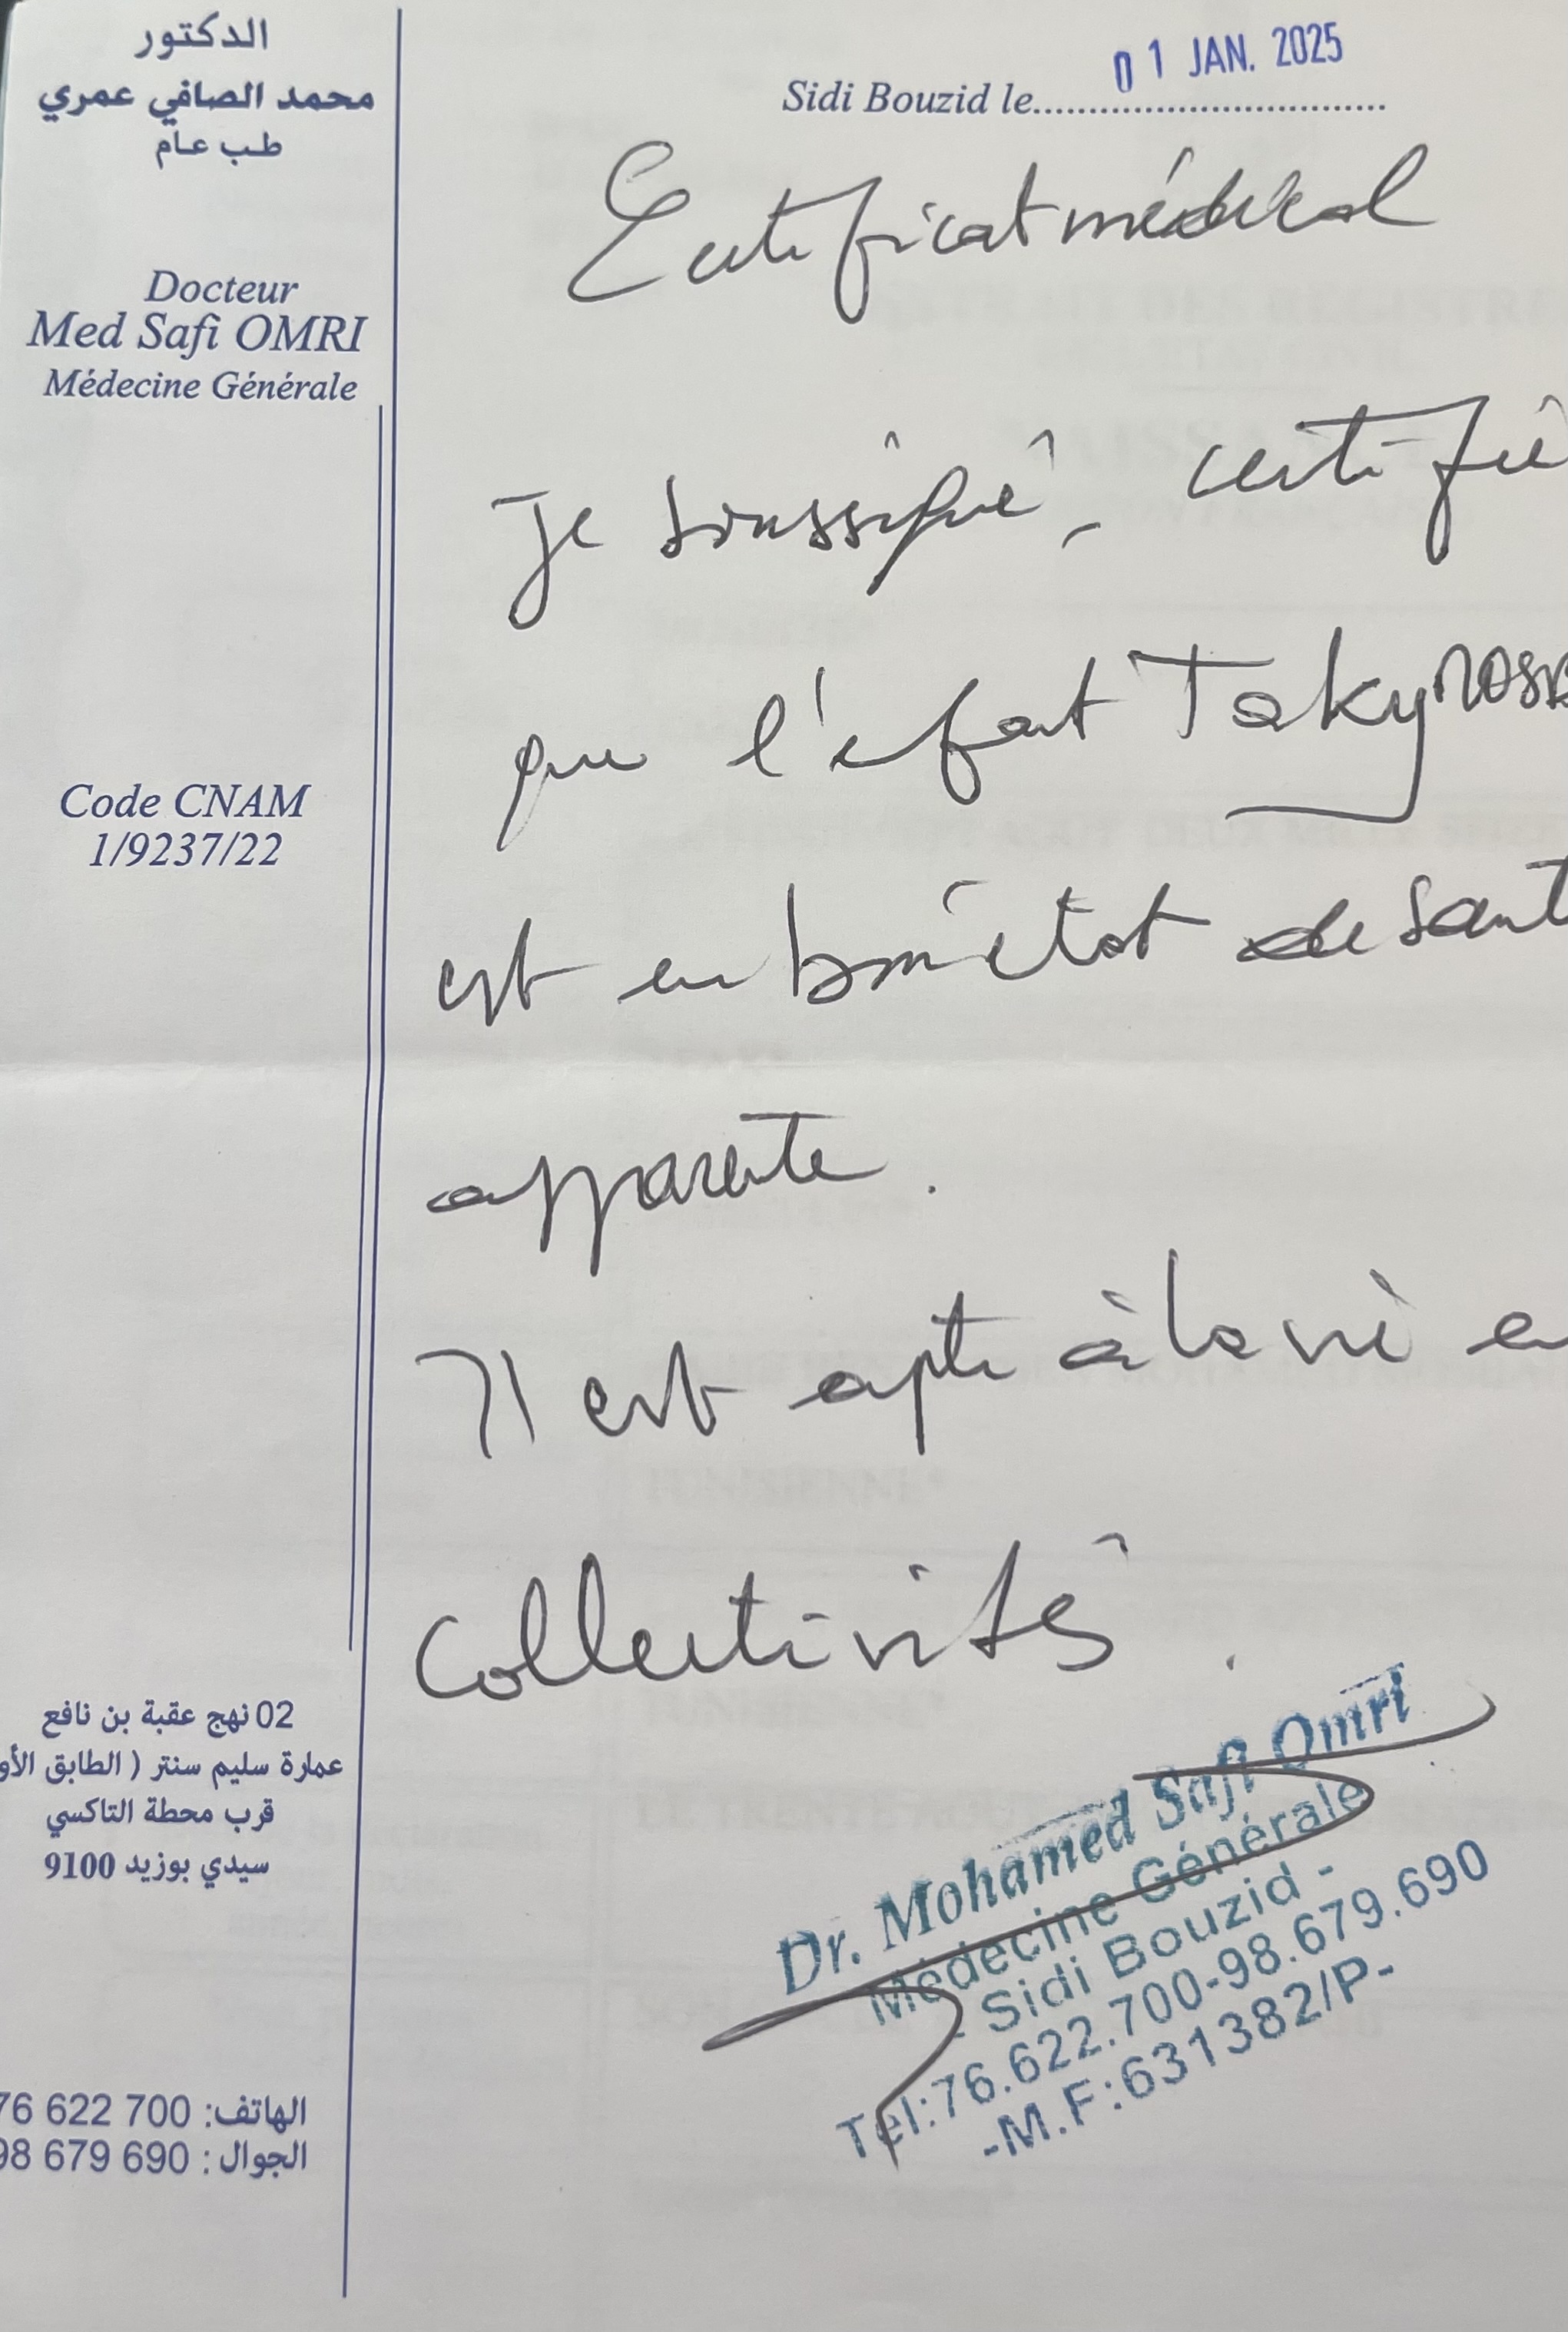 الدكتور
محمد الصافي عمري
طب عام
Docteur
Med Safi OMRI
Médecine Générale
Code CNAM
1/9237/22
02 نهج عقبة بن نافع
عمارة سليم سنتر ( الطابق الأو
قرب محطة التاكسي
سيدي بوزيد 9100
الهاتف: 76 622 700
الجوال : 98 679 690
Sidi Bouzid le 01 JAN. 2025
Certificat médical
Je soussigné, certifie
que l'efant Taky
est en bon état de sant
apparente.
Il est apte à la vie e
Collectivité.
Dr. Mohamed Safi Omri
Médecine Générale
- Sidi Bouzid -
Tel:76.622.700-98.679.690
-M.F:631382/P-